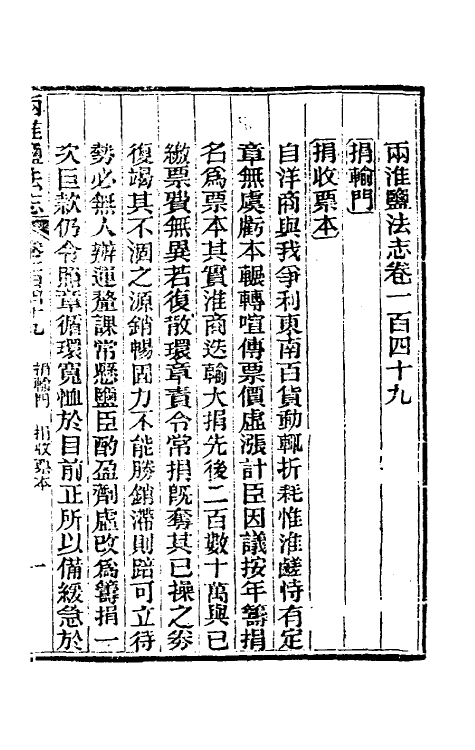 兩淮鹽法志卷一百四十九
捐輸門
捐收票本
自洋商與我爭利東南百貨動輒折耗惟淮鹺恃有定
章無虞虧本輾轉喧傳票價虛漲計臣因議按年籌捐
名爲票本其實淮商迭輸大捐先後二百數十萬與已
繳票費無異若復散環章責令常捐旣奪其已操之券
復竭其不涸之源銷暢固力不能勝銷滯則踣可立待
勢必無人辦運釐課常懸鹽臣酌盈劑虛改爲籌捐一
次巨款仍令照章循環寬恤於目前正所以備緩急於
兩淮鹽法志 卷一百四十九 捐輸門 捐收票本 一